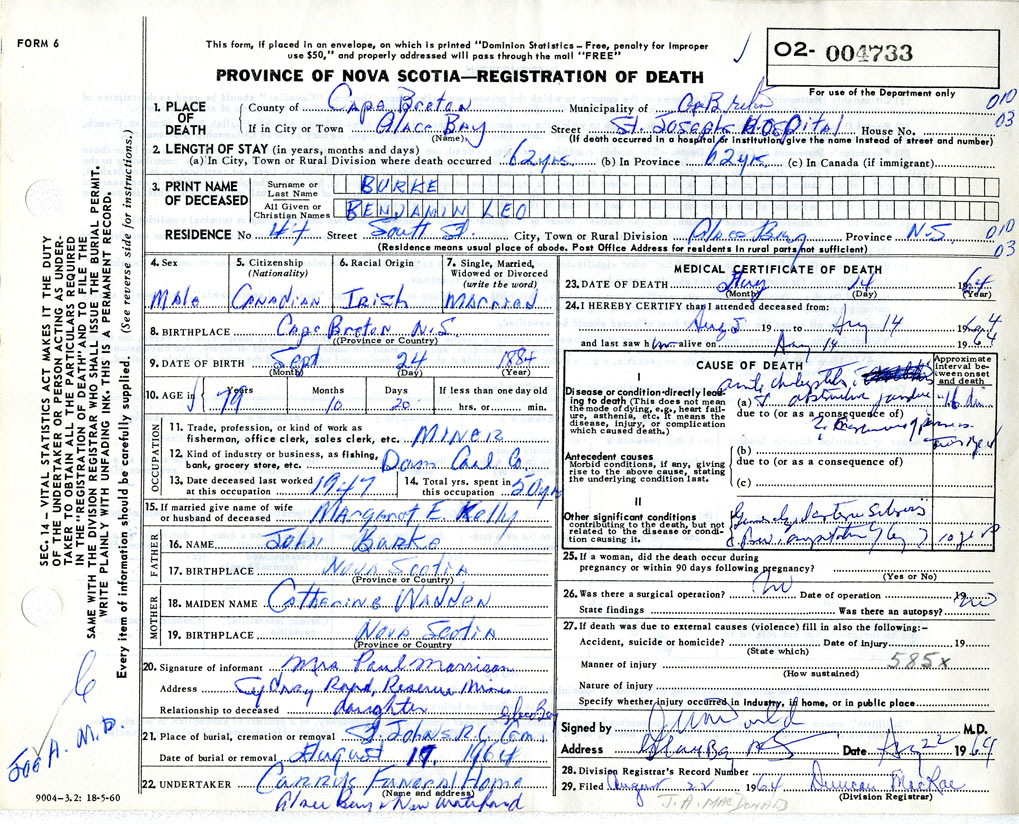 FORM 6
This form, if placed in an envelope, on which is printed "Dominion Statistics – Free, penalty for improper
use $50," and properly addressed will pass through the mail "FREE"
02- 004733
For use of the Department only
PROVINCE OF NOVA SCOTIA—REGISTRATION OF DEATH
010
03
1. PLACE OF DEATH
County of Cape Breton Municipality of Cape Breton
If in City or Town Glace Bay Street St. Josephs Hospital House No.
(Name) (If death occurred in a hospital or institution, give the name instead of street and number)
2. LENGTH OF STAY (in years, months and days)
(a) In City, Town or Rural Division where death occurred 62 yrs. (b) In Province 62 yrs. (c) In Canada (if immigrant)
3. PRINT NAME OF DECEASED
Surname or Last Name BURKE
All Given or Christian Names BENJAMIN LEO
RESIDENCE No 47 Street South St City, Town or Rural Division Glace Bay Province N.S.
(Residence means usual place of abode. Post Office Address for residents in rural parts not sufficient)
010
03
4. Sex
Male
5. Citizenship
(Nationality)
Canadian
6. Racial Origin
Irish
7. Single, Married, Widowed or Divorced
(write the word)
Married
8. BIRTHPLACE Cape Breton N.S.
(Province or Country)
9. DATE OF BIRTH Sept 24 1884
(Month) (Day) (Year)
10. AGE in Years Months Days If less than one day old
79 10 20 hrs. or min.
OCCUPATION
11. Trade, profession, or kind of work as
fisherman, office clerk, sales clerk, etc. MINER
12. Kind of industry or business, as fishing,
bank, grocery store, etc. Dom Coal Co.
13. Date deceased last worked
at this occupation 1947
14. Total yrs. spent in
this occupation 50 yrs
15. If married give name of wife
or husband of deceased Margaret E. Kelly
FATHER
16. NAME John Burke
17. BIRTHPLACE Nova Scotia
(Province or Country)
MOTHER
18. MAIDEN NAME Catherine
19. BIRTHPLACE Nova Scotia
(Province or Country)
20. Signature of informant Mrs Paul Morrison
Address Sydney Road, Reserve Mines
Relationship to deceased daughter
Glace Bay
21. Place of burial, cremation or removal St. Johns R.C. Cem.
Date of burial or removal August 17, 1964
22. UNDERTAKER Currys Funeral Home
(Name and address)
Glace Bay & New Waterford
MEDICAL CERTIFICATE OF DEATH
23. DATE OF DEATH Aug 14 1964
(Month) (Day) (Year)
24. I HEREBY CERTIFY that I attended deceased from:
Aug 5 19 to Aug 14 1964
and last saw him alive on Aug 14 1964
CAUSE OF DEATH
Approximate interval between onset and death
I
Disease or condition directly leading to death (This does not mean the mode of dying, e.g., heart failure, asthenia, etc. It means the disease, injury, or complication which caused death.)
(a) acute cholecystitis obstructive jaundice
due to (or as a consequence of)
(b)
due to (or as a consequence of)
(c)
Antecedent causes
Morbid conditions, if any, giving rise to the above cause, stating the underlying condition last.
II
Other significant conditions
contributing to the death, but not related to the disease or condition causing it.
25. If a woman, did the death occur during
pregnancy or within 90 days following pregnancy?
(Yes or No)
26. Was there a surgical operation? No Date of operation 19
State findings Was there an autopsy? no
27. If death was due to external causes (violence) fill in also the following:–
Accident, suicide or homicide? Date of injury 19
(State which)
Manner of injury 585x
(How sustained)
Nature of injury
Specify whether injury occurred in industry, in home, or in public place
Signed by M.D.
Address Glace Bay NS Date Aug 22 1964
28. Division Registrar's Record Number
29. Filed August 22 1964 Duncan MacRae
(Division Registrar)
J. A. MACDONALD
SEC. 14 – VITAL STATISTICS ACT MAKES IT THE DUTY
OF THE UNDERTAKER OR PERSON ACTING AS UNDER-
TAKER TO OBTAIN ALL THE PARTICULARS REQUIRED
IN THE "REGISTRATION OF DEATH" AND TO FILE THE
SAME WITH THE DIVISION REGISTRAR WHO SHALL ISSUE THE BURIAL PERMIT.
WRITE PLAINLY WITH UNFADING INK. THIS IS A PERMANENT RECORD.
Every item of information should be carefully supplied. (See reverse side for instructions.)
A. M. D.
9004–3.2: 18-5-60